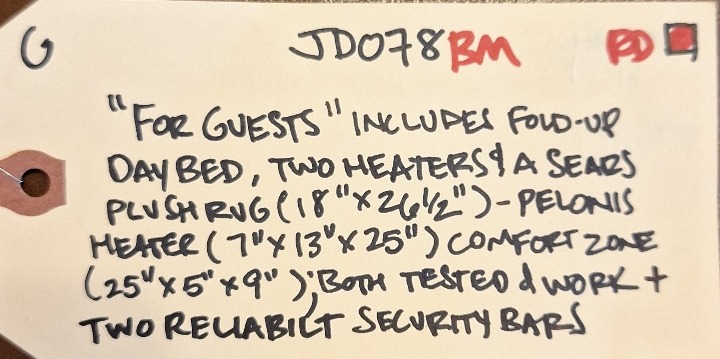 G JD078 BM RD
"FOR GUESTS" INCLUDES FOLD-UP
DAY BED, TWO HEATERS & A SEARS
PLUSH RUG (18" X 26 1/2") - PELONIS
HEATER (7" X 13" X 25") COMFORT ZONE
(25" X 5" X 9"); BOTH TESTED & WORK +
TWO RELIABILT SECURITY BARS